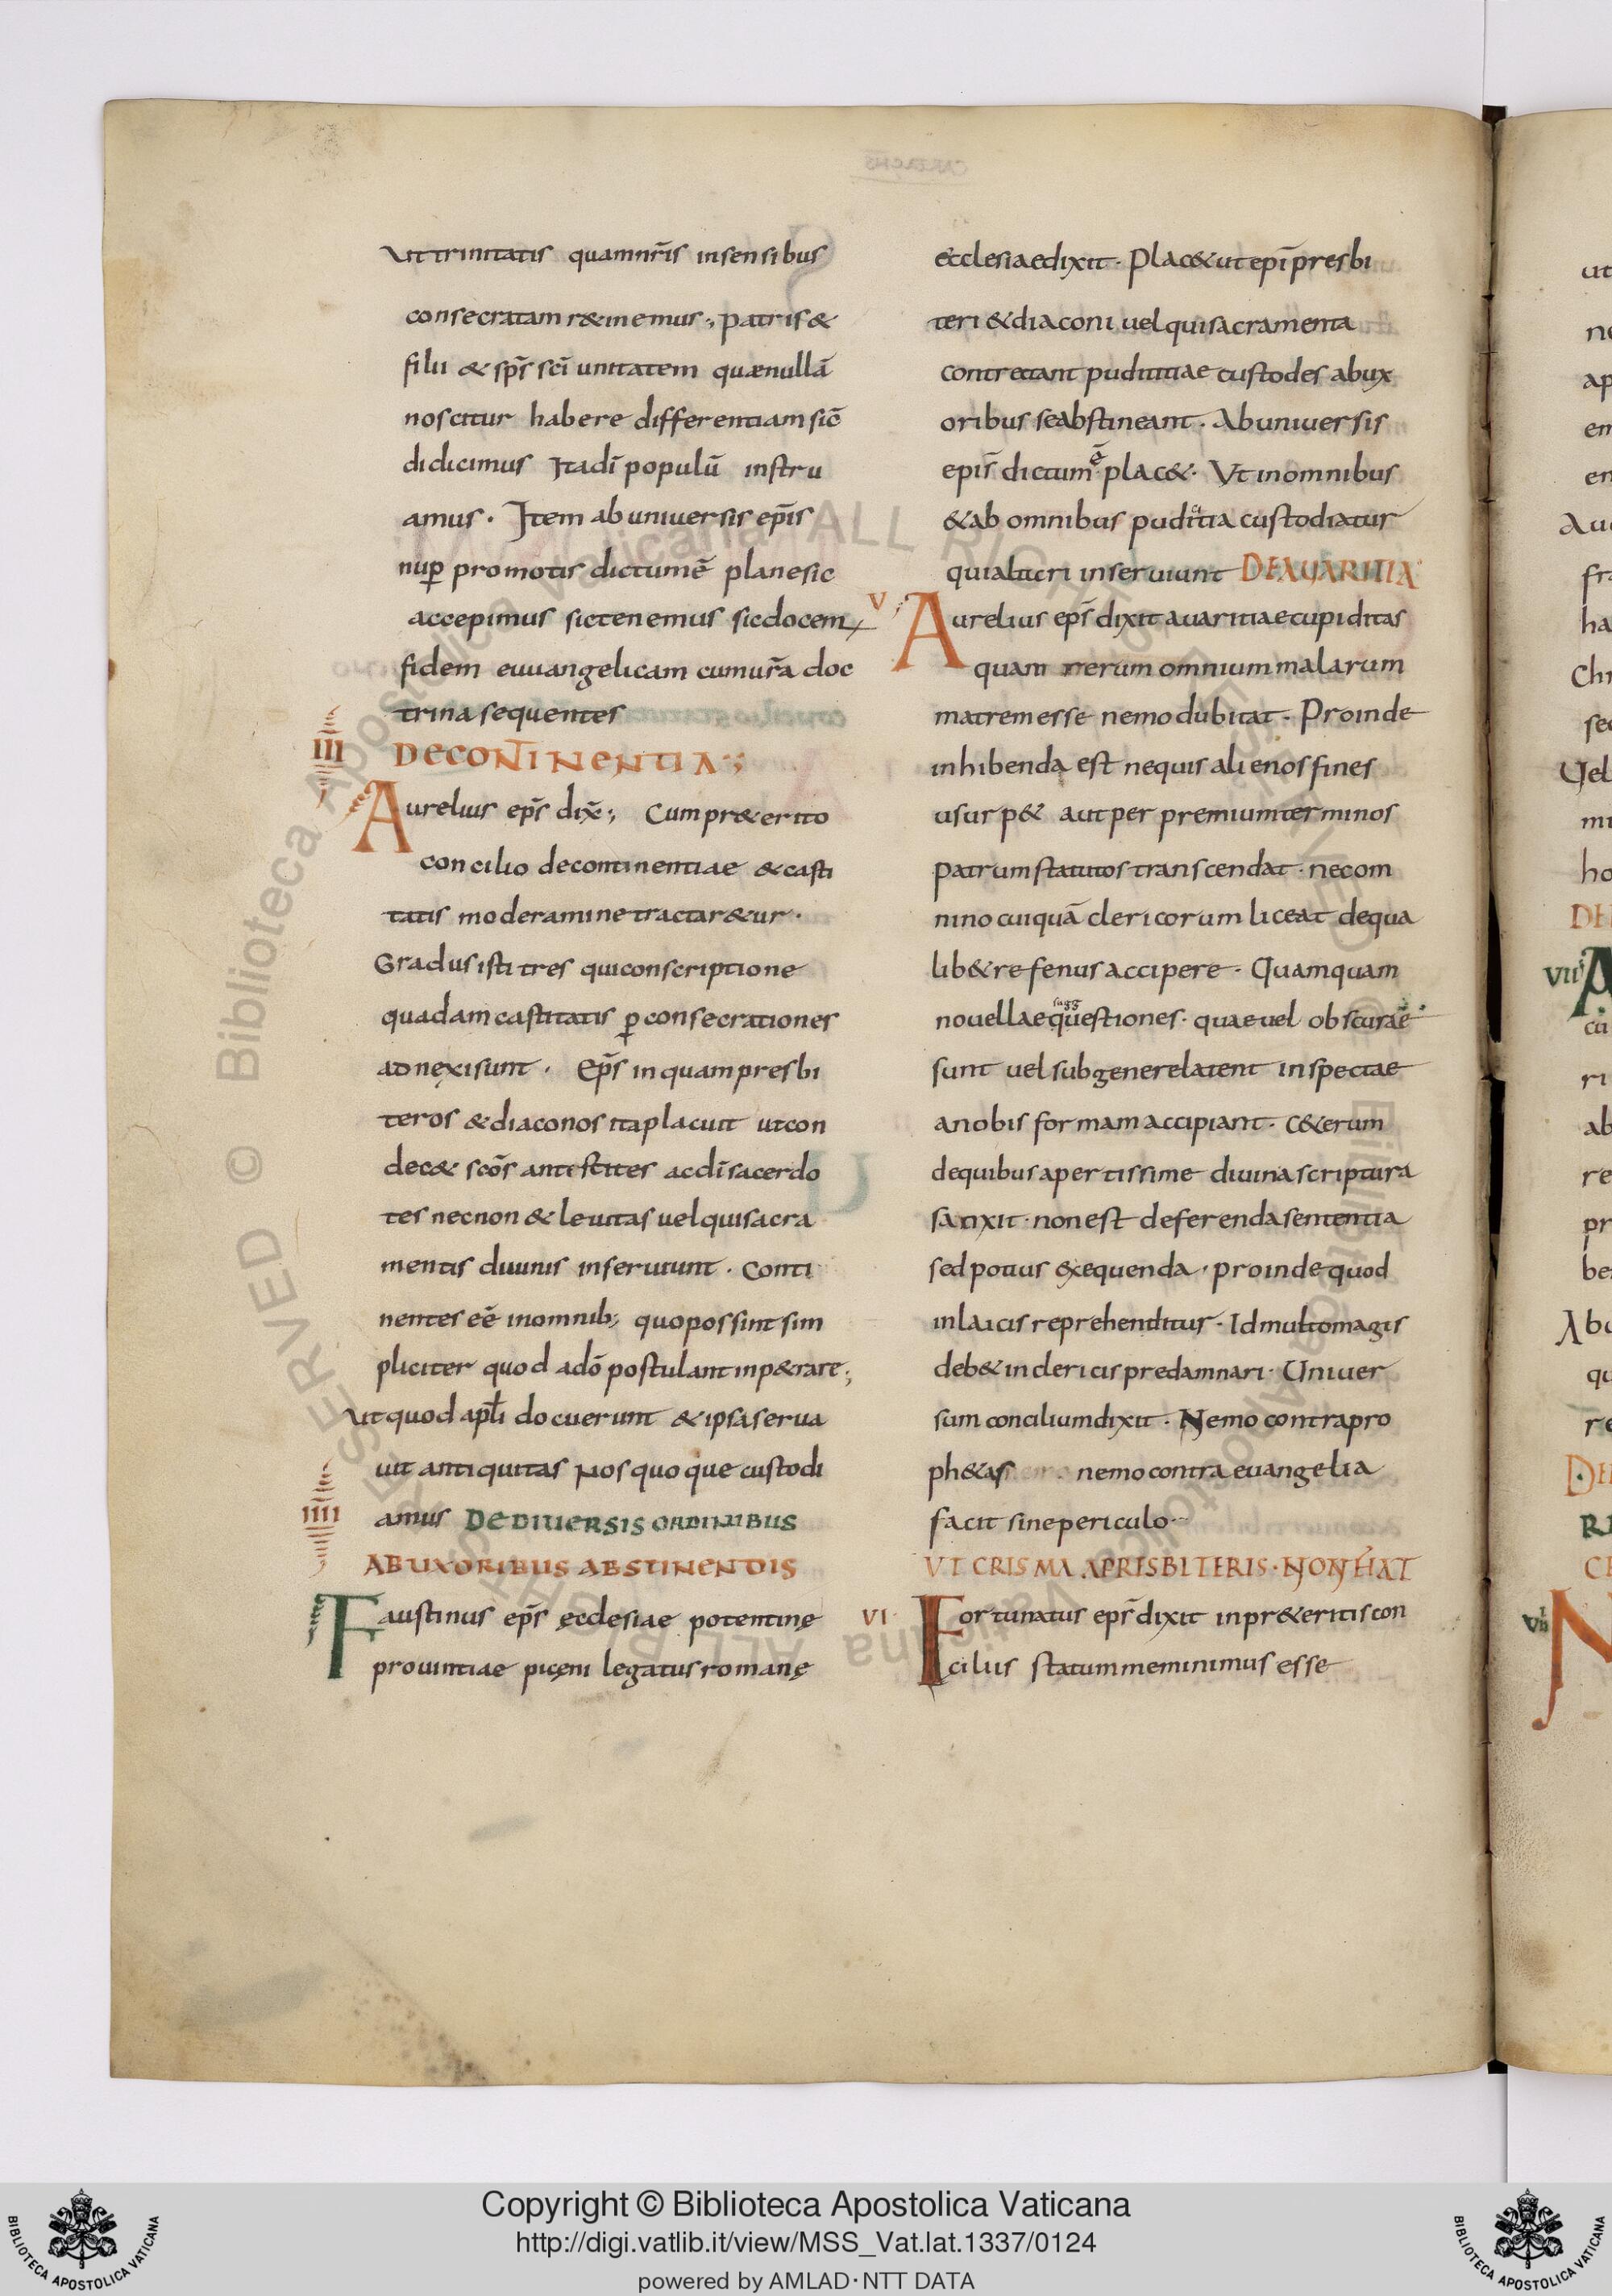 Ut trinitatis quam nr̄is in sensibus
consecratam r&inemus; patris &
filii & sp̄s sc̄i unitatem quae nullā
noscitur habere differentiam sic̄
didicimus Ita dī populū instru
amus · Item ab uniuersis ep̄is
nup̱ promotis dictum ē plane sic
accepimus sic tenemus sic docem
fidem euuangelicam cum ur̄a doc
trina sequentes
III DE CONTINENTIA;
Aurelius ep̄s dix̄; Cum pr&erito
concilio de continentiae & casti
tatis moderamine tractar&ur ·
Gradus isti tres qui conscriptione
quadam castitatis p̱ consecrationes
adnexi sunt · Ep̄s inquam presbi
teros & diaconos ita placuit ut con
dec& sc̄os antestites ac dī sacerdo
tes necnon & leuitas uel qui sacra
mentis diuinis inseruiunt · Conti
nentes eē in omnib; quo possint sim
pliciter quod a dō postulant inp&rare;
Ut quod apl̄i docuerunt & ipsa serua
uit antiquitas Nos quoque custodi
amus DE DIUERSIS ORDINIBUS
IIII
AB UXORIBUS ABSTINENDIS
Faustinus ep̄s ęcclesiae potentinę
prouintiae picęni legatus romanę
ecclesiae dixit · Plac& ut epī presbi
teri & diaconi uel qui sacramenta
contrectant pudititiae custodes ab ux
oribus se abstineant · Ab uniuersis
epis̄ dictum ē plac& · Ut in omnibus
& ab omnibus puditia custodiatur
qui altıcri inseruiunt DE AUARITIA
V Aurelius ep̄s dixit auaritiae cupiditas
quam rerum omnium malarum
matrem esse nemo dubitat · Proinde
inhibenda est ne quis alienos fines
usurp& aut per premium terminos
patrum statutos transcendat · nec om
nino cuiquā clericorum liceat de qua
lib& re fenus accipere · Quamquam
nouellae sugg questiones · quae uel obscurae
sunt uel sub genere latent inspectae
a nobis formam accipiant · C&erum
de quibus apertissime diuina scriptura
sanxit · non est deferenda sententia
sed potius exequenda · proinde quod
in laicis reprehenditur · Id multo magis
deb& in clericis predamnari · Uniuer
sum concilium dixit · Nemo contra pro
ph&as nemo contra euangelia
facit sine periculo
UT CRISMA A PRISBITERIS · NON FIAT
VI Fortunatus ep̄s dixit in pr&eritis con
ciliis statum meminimus esse
Copyright © Biblioteca Apostolica Vaticana
http://digi.vatlib.it/view/MSS_Vat.lat.1337/0124
powered by AMLAD·NTT DATA
BIBLIOTECA APOSTOLICA VATICANA
BIBLIOTECA APOSTOLICA VATICANA
© Biblioteca Apostolica Vaticana ALL RIGHTS RESERVED